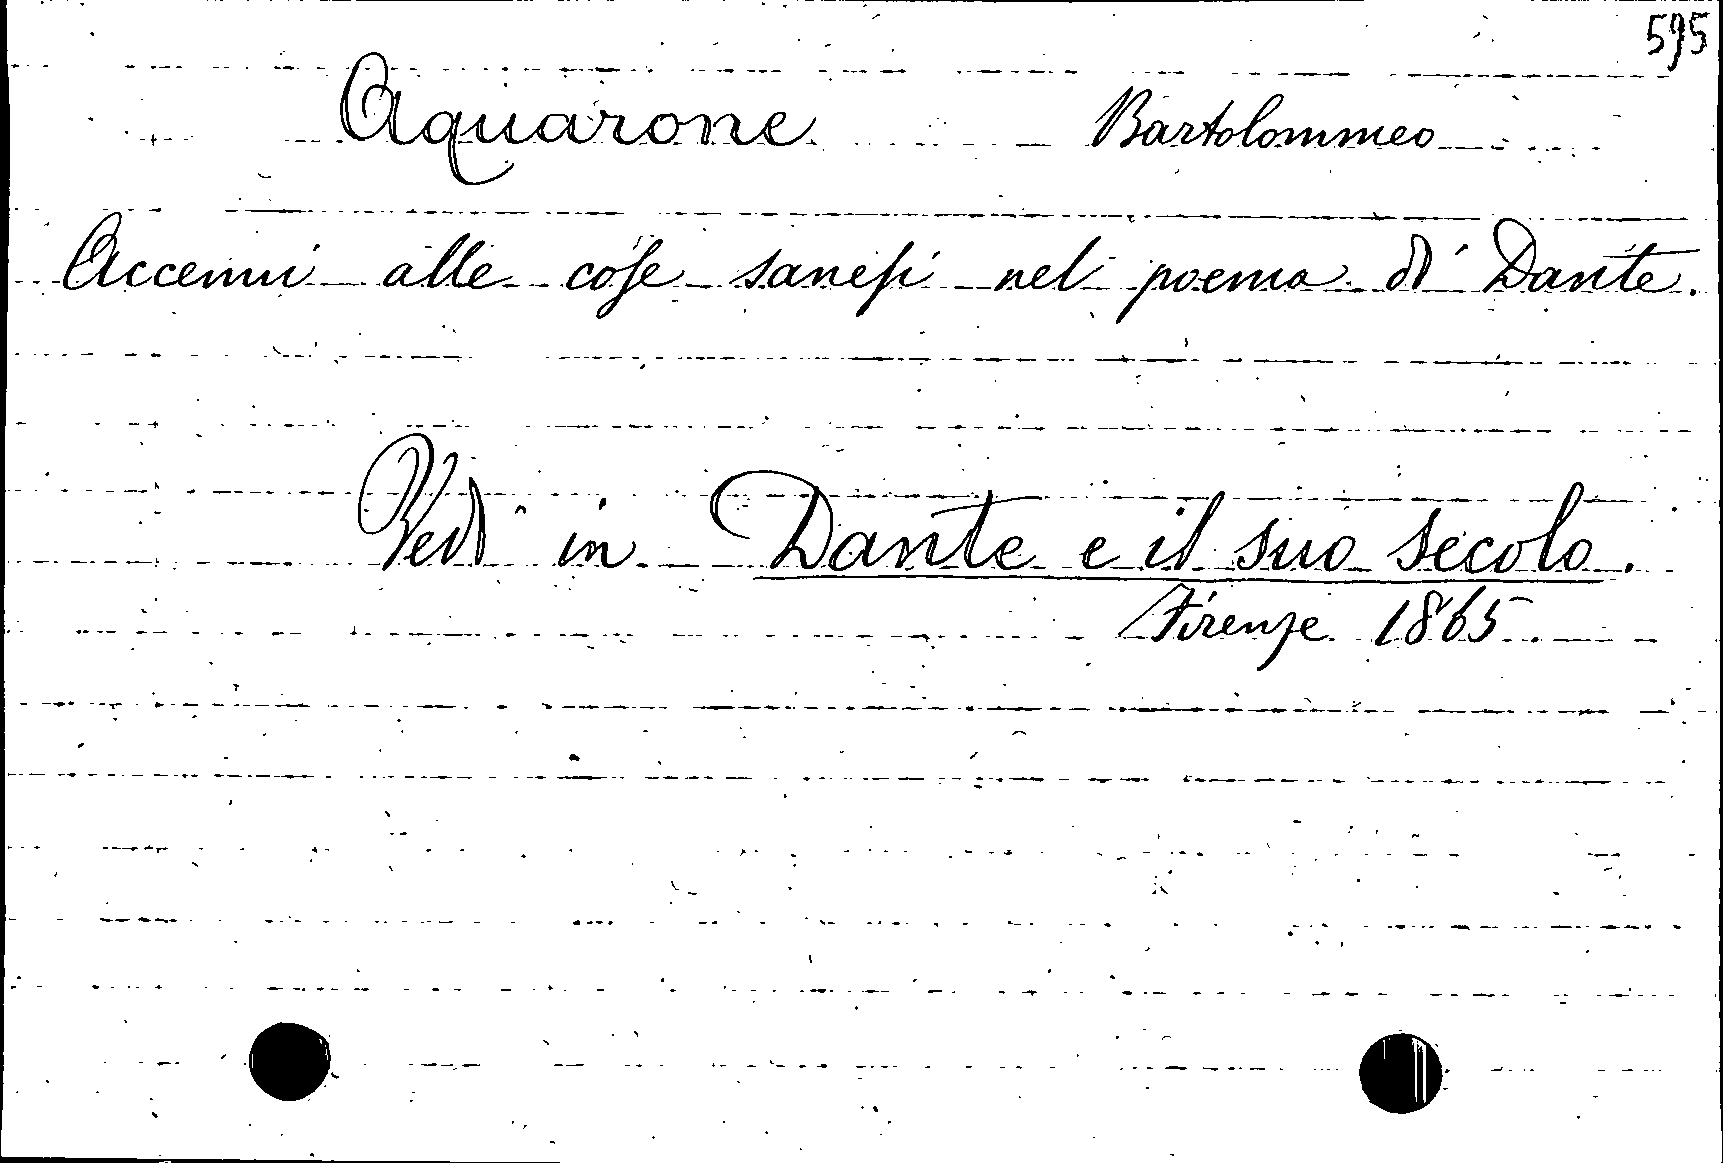 595
Aquarone Bartolommeo
Accenni alle cose sanesi nel poema di Dante.
Vedi in Dante e il suo secolo.
Firenze 1865.